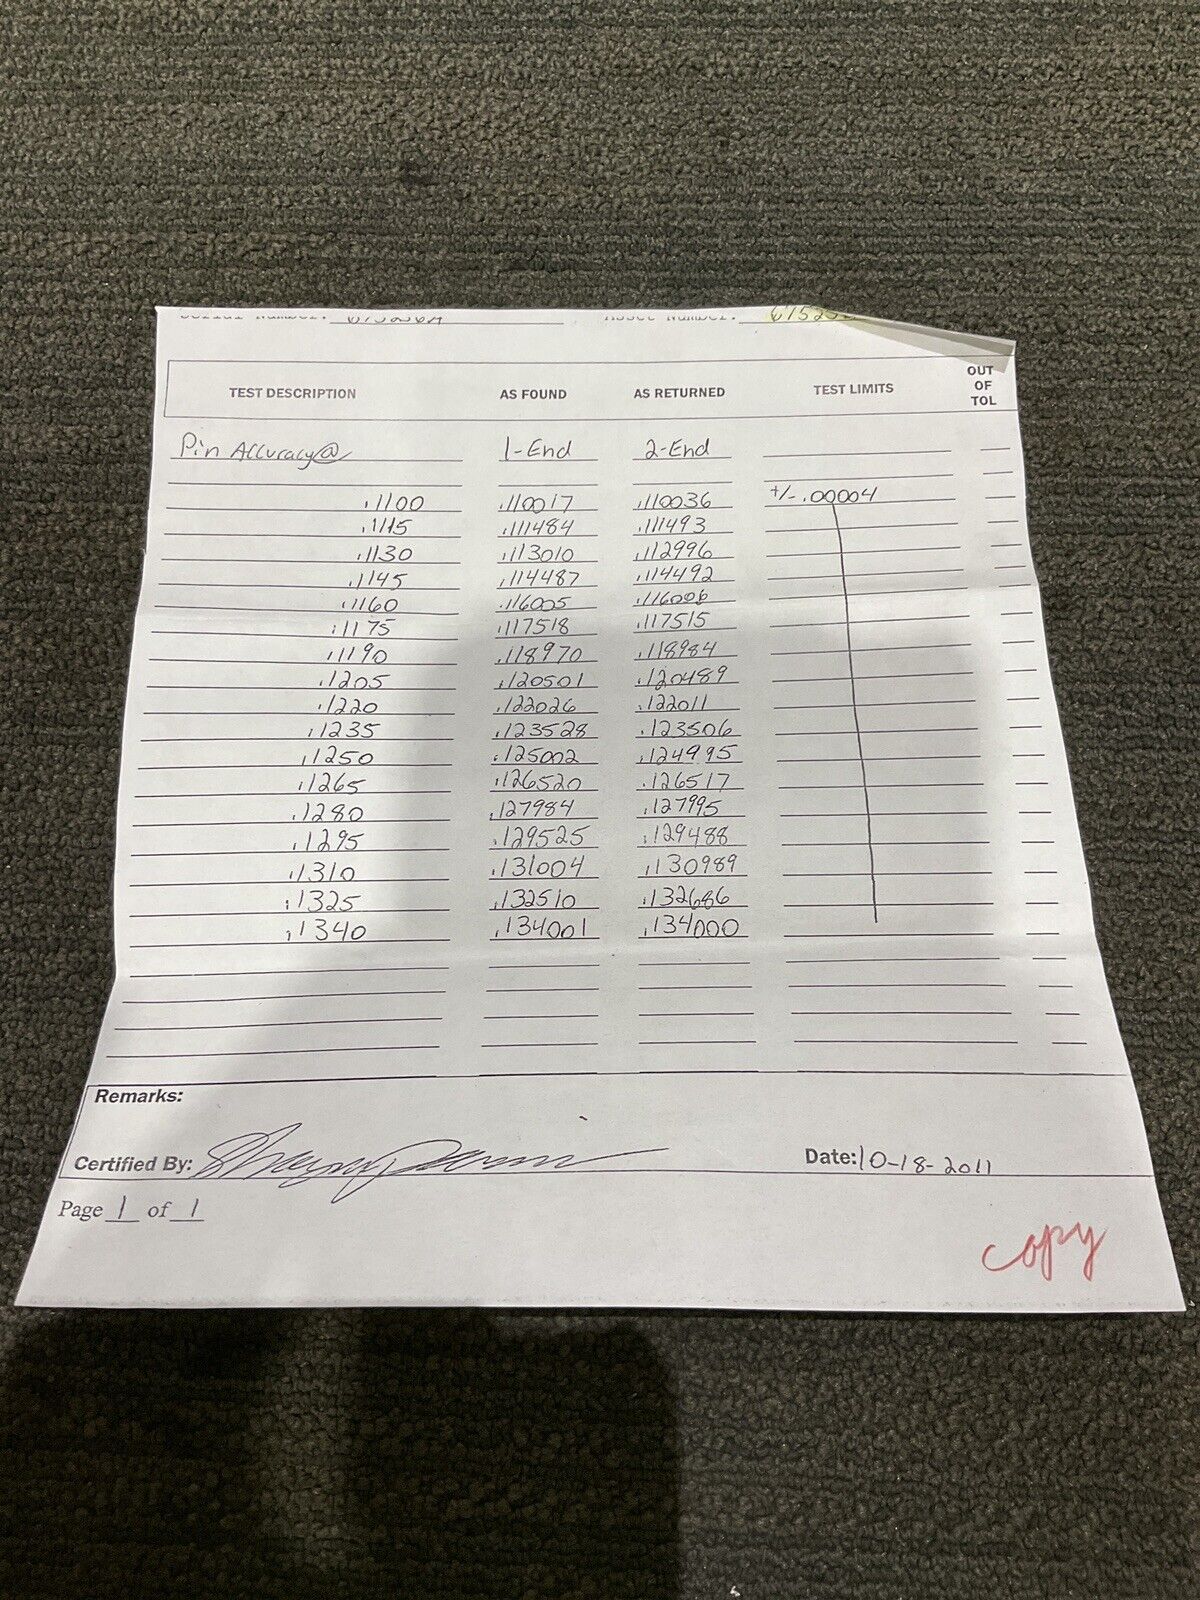 Serial Number: 615236A Asset Number: 61523
TEST DESCRIPTION AS FOUND AS RETURNED TEST LIMITS OUT OF TOL
Pin Accuracy@ 1-End 2-End
.1100 .110017 .110036 +/-.00004
.1115 .111484 .111493
.1130 .113010 .112996
.1145 .114487 .114492
.1160 .116005 .116006
.1175 .117518 .117515
.1190 .118970 .118984
.1205 .120501 .120489
.1220 .122026 .122011
.1235 .123528 .123506
.1250 .125002 .124995
.1265 .126520 .126517
.1280 .127984 .127995
.1295 .129525 .129488
.1310 .131004 .130989
.1325 .132510 .132686
.1340 .134001 .134000
Remarks:
Certified By: Date: 10-18-2011
Page 1 of 1
copy